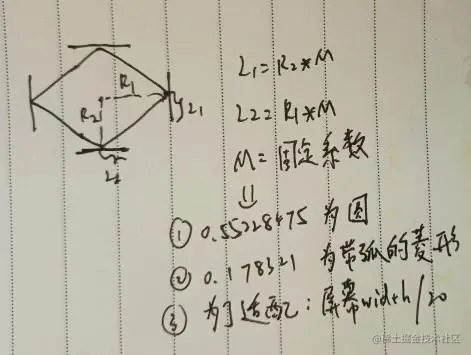 R1
R2
L1
L2
L1=R2*M
L2=R1*M
M=固定系数
① 0.55228475 为圆
② 0.178321 为带弧的菱形
③ 为了适配:屏幕width/20
@稀土掘金技术社区